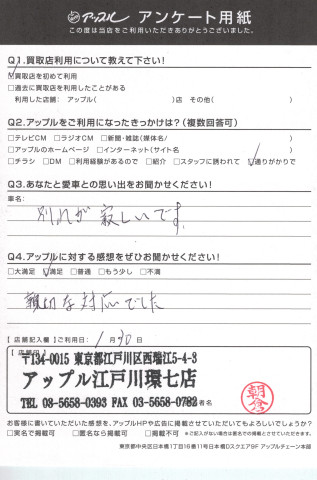 アップル アンケート用紙
この度は当店をご利用いただきありがとうございました。
Q1.買取店利用について教えて下さい!
☑買取店を初めて利用
□過去に買取店を利用したことがある
利用した店舗: アップル( )店 その他( )
Q2.アップルをご利用になったきっかけは?(複数回答可)
□テレビCM □ラジオCM □新聞・雑誌(媒体名/ )
□アップルのホームページ □インターネット(サイト名 )
□チラシ □DM □利用経験があるので □紹介 □スタッフに誘われて ☑通りがかりで
Q3.あなたと愛車との思い出をお聞かせください!
車名:
別れが寂しいです。
Q4.アップルに対する感想をぜひお聞かせください!
□大満足 ☑満足 □普通 □もう少し □不満
親切な対応でした
【店舗記入欄】ご利用日: 1月30日
【店舗印】
〒134-0015 東京都江戸川区西瑞江5-4-3
アップル江戸川環七店
TEL 03-5658-0393 FAX 03-5658-0782 者名
朝倉
お客様に書いていただいた感想を、アップルHPや広告に掲載させていただいてもよろしいでしょうか?
□実名で掲載可 □匿名なら掲載可 □掲載不可 ※ご記入がない場合は匿名での掲載とさせていただきます。
東京都中央区日本橋1丁目16番11号日本橋Dスクエア5F アップルチェーン本部